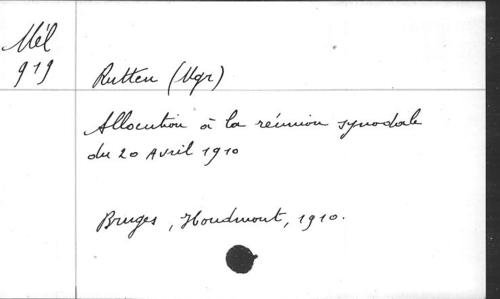 Mél
919
Rutten (Mgr)
Allocution à la réunion synodale
du 20 Avril 1910
Bruges, Houdmont, 1910.